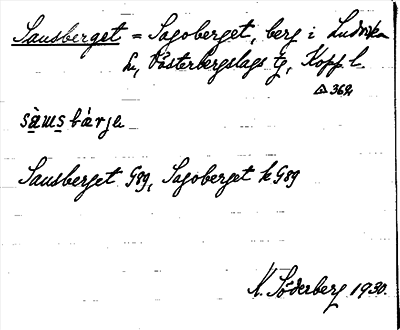 Sausberget = Sagoberget, berg i Ludvika
ln, Västerbergslags tg, Kopp. l.
△ 362
sàmsbárja
Sausberget G89, Sagoberget k G89
N. Söderberg 1930.